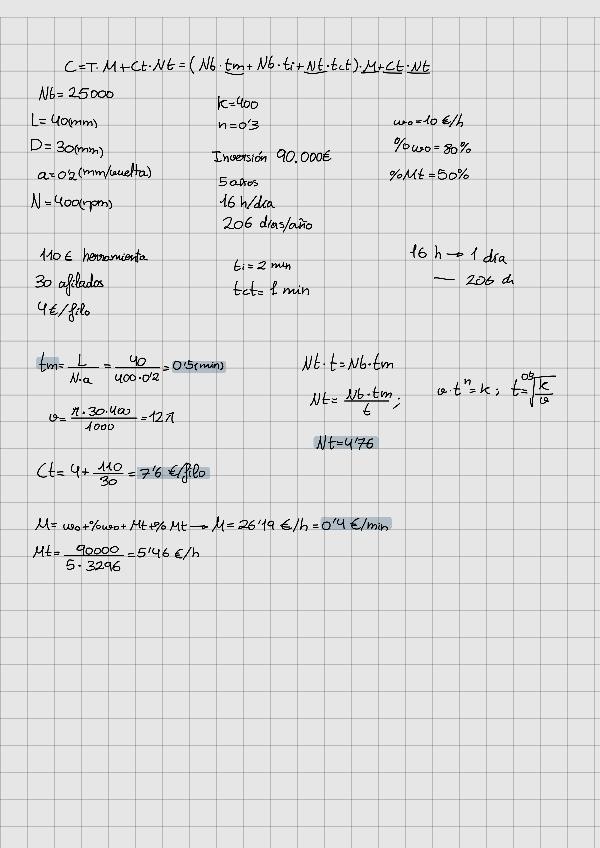 C=T·M+Ct·Nt=(Nb·tm+Nb·ti+Nt·tct)·M+Ct·Nt
Nb=25000
L=40(mm)
D=30(mm)
a=0'2(mm/vuelta)
N=400(rpm)
k=400
n=0'3
Inversión 90.000€
5 años
16 h/día
206 días/año
wo=10€/h
%wo=80%
%Mt=50%
110€ herramienta
30 afilados
4€/filo
ti=2 min
tct=1 min
16 h → 1 día
— 206 di
tm= L/N·a = 40/400·0'2 = 0'5(min)
v= π·30·400/1000 =12π
Nt·t=Nb·tm
Nt= Nb·tm/t ;
Nt=4'76
v·tⁿ=k; t= 0'3√k/v
Ct=4+ 110/30 = 7'6 €/filo
M=wo+%wo+Mt+%Mt → M=26'19 €/h=0'4 €/min
Mt= 90000/5·3296 =5'46 €/h